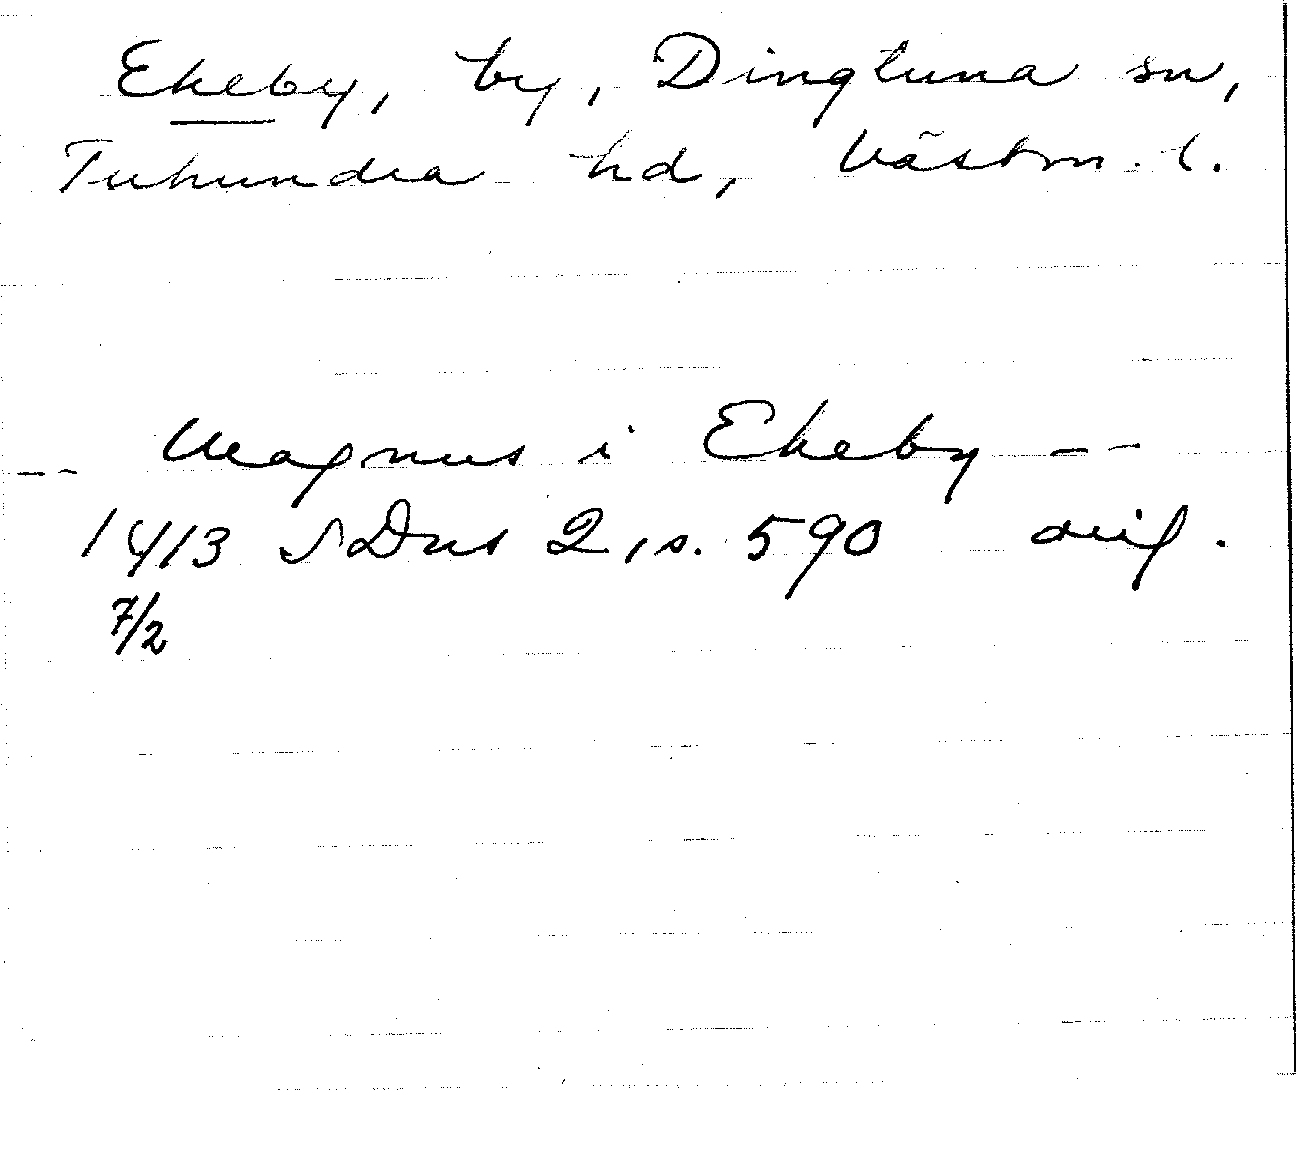 Ekeby, by, Dingtuna sn,
Tuhundra hd, Västm. l.
-- Magnus i Ekeby --
1413 SDns 2, s. 590 orig.
7/2